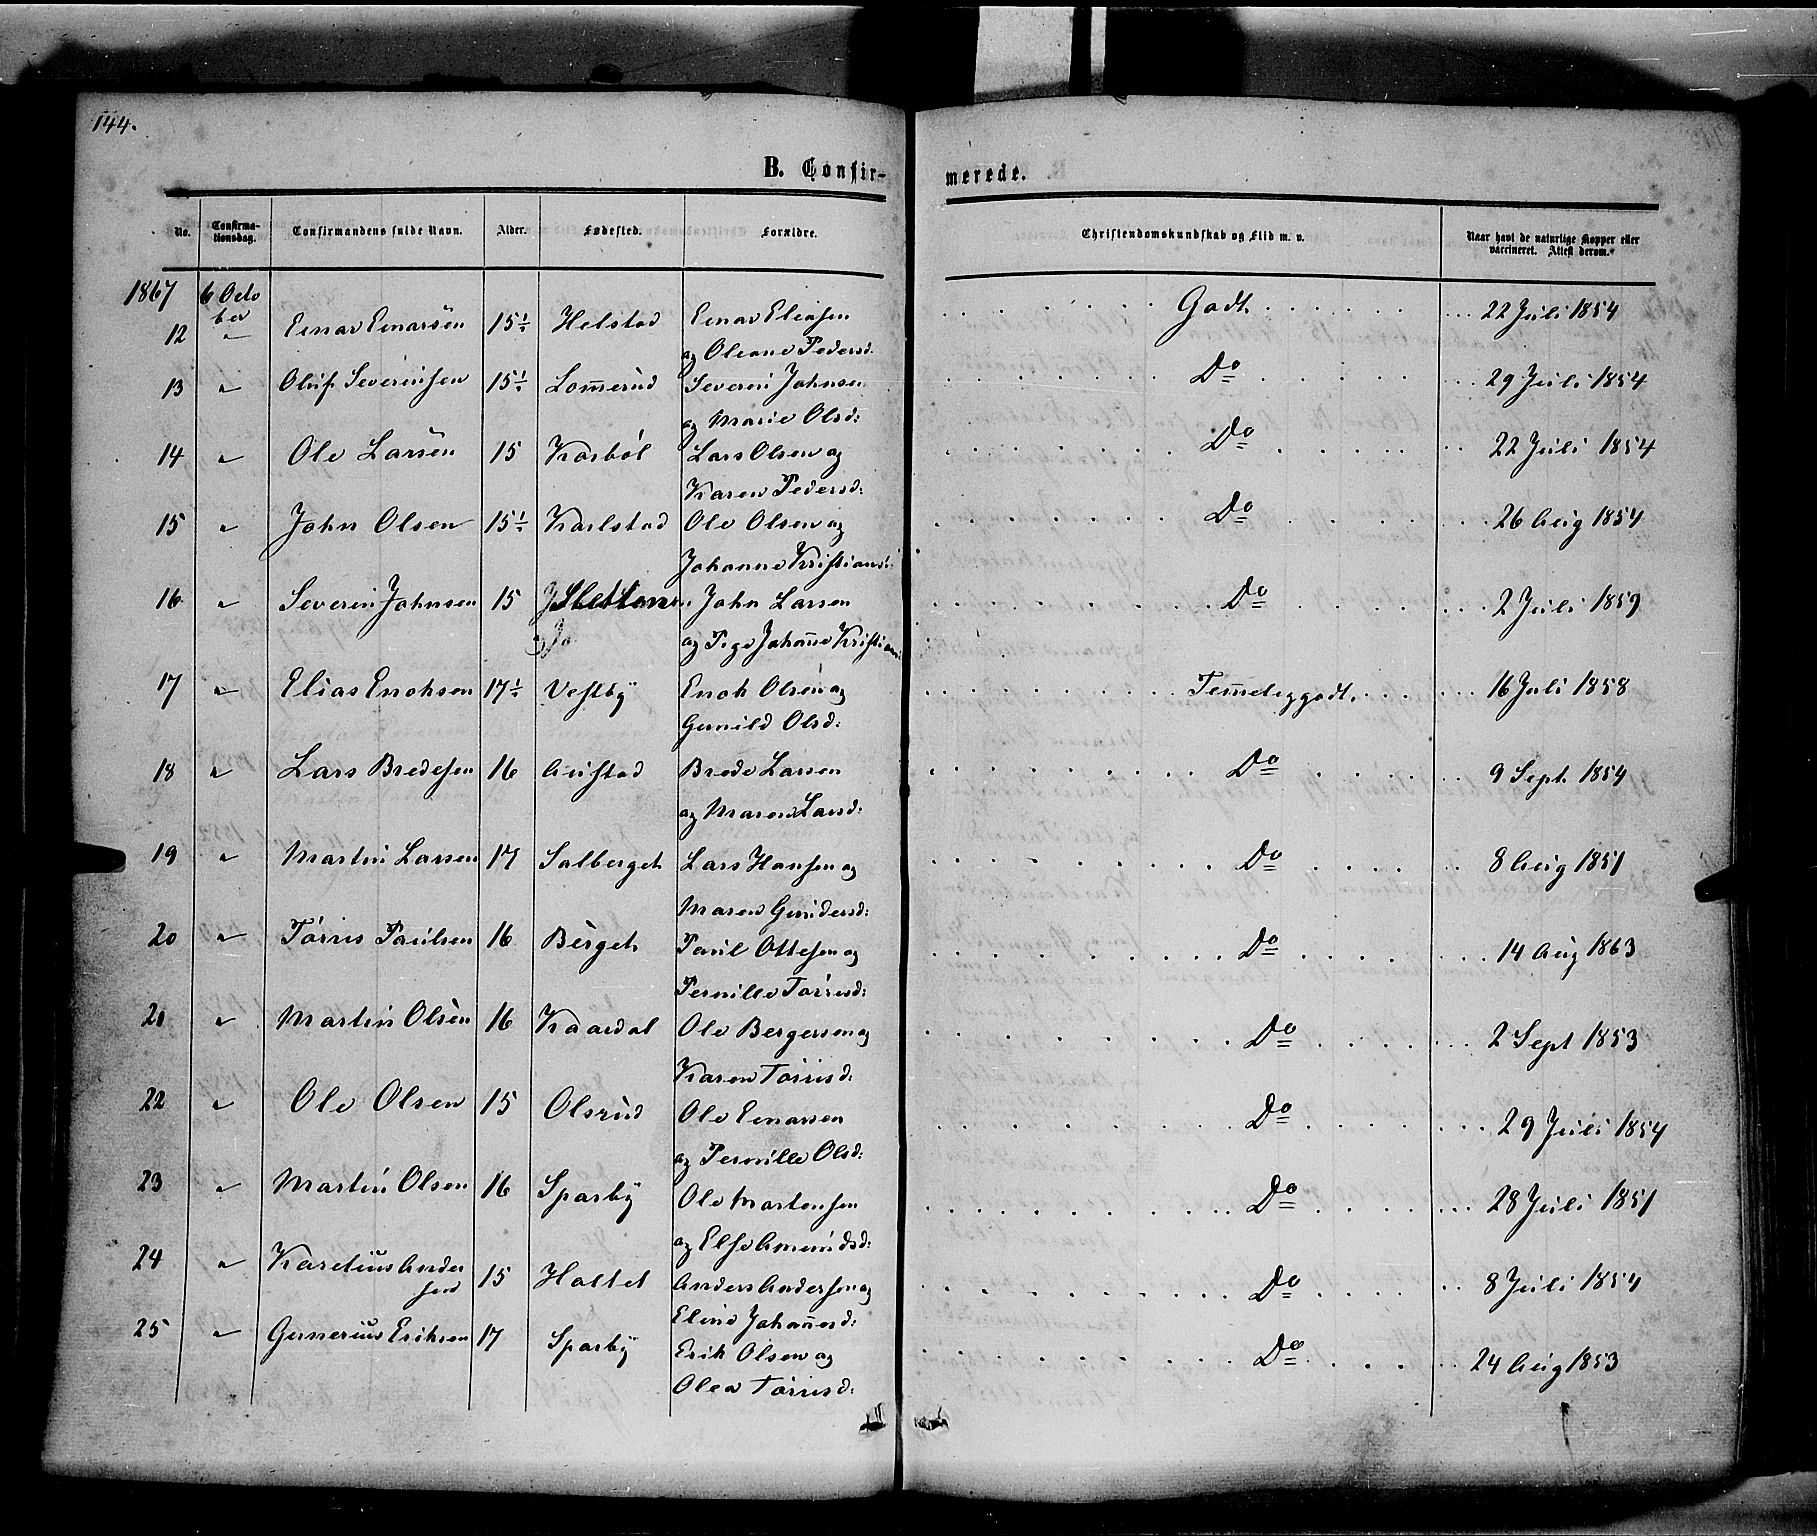 144.
B. Confirmerede.
No. Confirmationsdag. Confirmandens fulde Navn. Alder. Fødested. Forældre. Christendomskundskab og Flid m. v. Naar havt de naturlige Kopper eller vaccineret. Attest derom.
1867 6 October
12 " Einar Einarsen 15½ Helstad Einar Eliasen og Oleane Pedersd: Godt 22 Juli 1854
13 " Oluf Severinsen 15½ Lommerud Severin Johnsen og Marie Olsd: Do 29 Juli 1854
14 " Ole Larsen 15 Karböl Lars Olsen og Karen Pedersd: Do 22 Juli 1854
15 " John Olsen 15½ Karlstad Ole Olsen og Johanne Kristiansd: Do 26 Aug 1854
16 " Severin Johnsen 15 John Larsen og Pige Johanne Kristians Do 2 Juli 1859
17 " Elias Enoksen 17½ Vestby Enok Olsen og Gunild Olsd: Temmelig godt. 16 Juli 1858
18 " Lars Bredesen 16 Austad Brede Larsen og Maren Larsd: Do 9 Sept 1854
19 " Martin Larsen 17 Salberget Lars Hansen og Maren Gundersd: Do 8 Aug 1851
20 " Törris Paulsen 16 Berget Paul Ottesen og Pernille Törrisd: Do 14 Aug 1863
21 " Martin Olsen 16 Kaardal Ole Bergersen og Karen Törrisd: Do 2 Sept 1853
22 " Ole Olsen 15 Olsrud Ole Einarsen og Pernille Olsd: Do 29 Juli 1854
23 " Martin Olsen 16 Sparby Ole Martensen og Else Amundsd: Do 28 Juli 1851
24 " Karelius Andersen 15 Holtet Anders Andersen og Eline Johannesd: Do 8 Juli 1854
25 " Gunerius Eriksen 17 Sparby Erik Olsen og Olea Törrisd: Do 24 Aug 1853